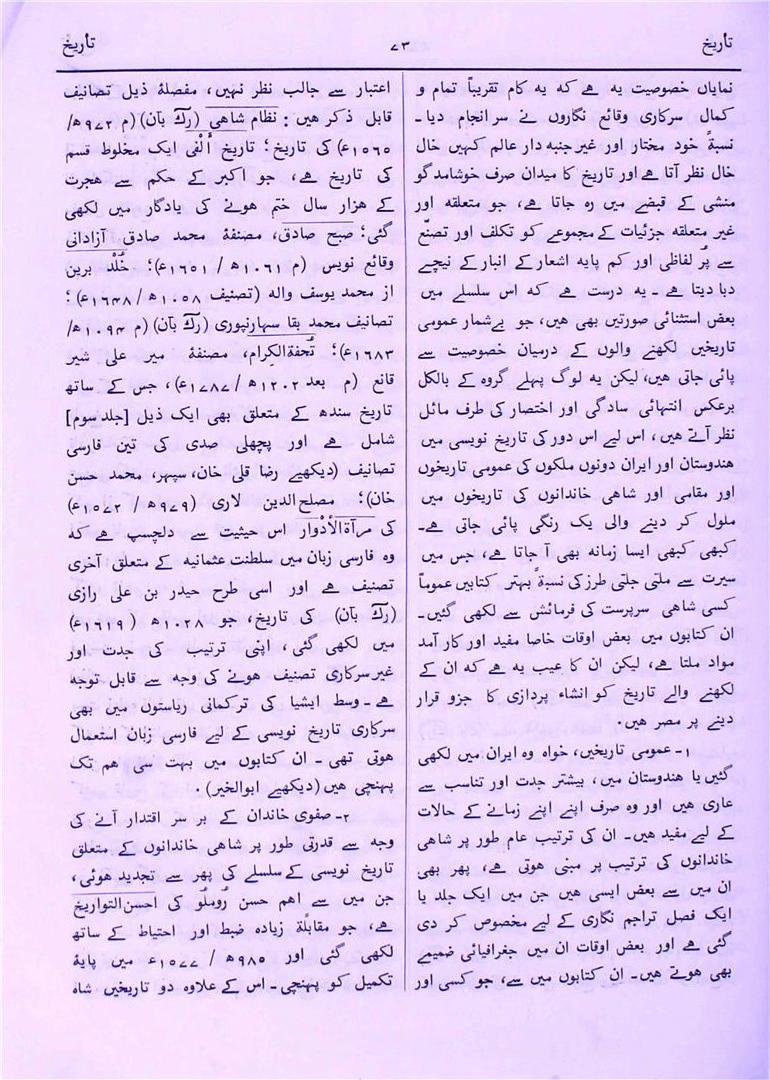 تاریخ
۷۳
تاریخ
نمایاں خصوصیت یہ ہے کہ یہ کام تقریباً تمام و
کمال سرکاری وقائع نگاروں نے سر انجام دیا ۔
نسبۃً خود مختار اور غیر جنبہ دار عالم کہیں خال
خال نظر آتا ہے اور تاریخ کا میدان صرف خوشامد گو
منشی کے قبضے میں رہ جاتا ہے، جو متعلقہ اور
غیر متعلقہ جزئیات کے مجموعے کو تکلف اور تصنّع
سے پُر لفاظی اور کم پایہ اشعار کے انبار کے نیچے
دبا دیتا ہے ۔ یہ درست ہے کہ اس سلسلے میں
بعض استثنائی صورتیں بھی ہیں، جو بےشمار عمومی
تاریخیں لکھنے والوں کے درمیان خصوصیت سے
پائی جاتی ہیں، لیکن یہ لوگ پہلے گروہ کے بالکل
برعکس انتہائی سادگی اور اختصار کی طرف مائل
نظر آتے ہیں، اس لیے اس دور کی تاریخ نویسی میں
ہندوستان اور ایران دونوں ملکوں کی عمومی تاریخوں
اور مقامی اور شاہی خاندانوں کی تاریخوں میں
ملول کر دینے والی یک رنگی پائی جاتی ہے۔
کبھی کبھی ایسا زمانہ بھی آ جاتا ہے، جس میں
سیرت سے ملتی جلتی طرز کی نسبۃً بہتر کتابیں عموماً
کسی شاہی سرپرست کی فرمائش سے لکھی گئیں۔
ان کتابوں میں بعض اوقات خاصا مفید اور کار آمد
مواد ملتا ہے، لیکن ان کا عیب یہ ہے کہ ان کے
لکھنے والے تاریخ کو انشاء پردازی کا جزو قرار
دینے پر مصر ہیں.
۱۔ عمومی تاریخیں، خواہ وہ ایران میں لکھی
گئیں یا ہندوستان میں، بیشتر جدت اور تناسب سے
عاری ہیں اور وہ صرف اپنے اپنے زمانے کے حالات
کے لیے مفید ہیں۔ ان کی ترتیب عام طور پر شاہی
خاندانوں کی ترتیب پر مبنی ہوتی ہے، پھر بھی
ان میں سے بعض ایسی ہیں جن میں ایک جلد یا
ایک فصل تراجم نگاری کے لیے مخصوص کر دی
گئی ہے اور بعض اوقات ان میں جغرافیائی ضمیمے
بھی ہوتے ہیں۔ ان کتابوں میں سے، جو کسی اور
اعتبار سے جالب نظر نہیں، مفصلۂ ذیل تصانیف
قابل ذکر ہیں : نظام شاہی (رکّ بآن) (م ۹۷۲ھ/
۱۵۶۵ء) کی تاریخ؛ تاریخ اَلْفی ایک مخلوط قسم
کی تاریخ ہے، جو اکبر کے حکم سے ہجرت
کے ہزار سال ختم ہونے کی یادگار میں لکھی
گئی؛ صبح صادق، مصنفۂ محمد صادق آزادانی
وقائع نویس (م ۱۰۶۱ھ / ۱۶۵۱ء)؛ خُلْد برین
از محمد یوسف والہ (تصنیف ۱۰۵۸ھ/۱۶۴۸ء) ؛
تصانیف محمد بقا سہارنپوری (رکّ بآن) (م ۱۰۹۴ھ/
۱۶۸۳ء)؛ تُحفۃ الکِرام، مصنفۂ میر علی شیر
قانع (م بعد ۱۲۰۲ھ/۱۷۸۷ء)، جس کے ساتھ
تاریخ سندھ کے متعلق بھی ایک ذیل [جلد سوم]
شامل ہے اور پچھلی صدی کی تین فارسی
تصانیف (دیکھیے رضا قلی خان، سپہر، محمد حسن
خان)؛ مصلح الدین لاری (۹۷۹ھ / ۱۵۷۲ء)
کی مرآۃ الأدْوار اس حیثیت سے دلچسپ ہے کہ
وہ فارسی زبان میں سلطنت عثمانیہ کے متعلق آخری
تصنیف ہے اور اسی طرح حیدر بن علی رازی
(رکّ بآن) کی تاریخ، جو ۱۰۲۸ھ (۱۶۱۹ء)
میں لکھی گئی، اپنی ترتیب کی جدت اور
غیر سرکاری تصنیف ہونے کی وجہ سے قابل توجہ
ہے ۔ وسط ایشیا کی ترکمانی ریاستوں میں بھی
سرکاری تاریخ نویسی کے لیے فارسی زبان استعمال
ہوتی تھی ۔ ان کتابوں میں بہت سی ہم تک
پہنچی ہیں (دیکھیے ابوالخیر) .
۲۔ صفوی خاندان کے بر سر اقتدار آنے کی
وجہ سے قدرتی طور پر شاہی خاندانوں کے متعلق
تاریخ نویسی کے سلسلے کی پھر سے تجدید ہوئی،
جن میں سے اہم حسن رُوملُو کی احسن التواریخ
ہے، جو مقابلۃً زیادہ ضبط اور احتیاط کے ساتھ
لکھی گئی اور ۹۸۵ھ / ۱۵۷۷ء میں پایۂ
تکمیل کو پہنچی ۔ اس کے علاوہ دو تاریخیں شاہ